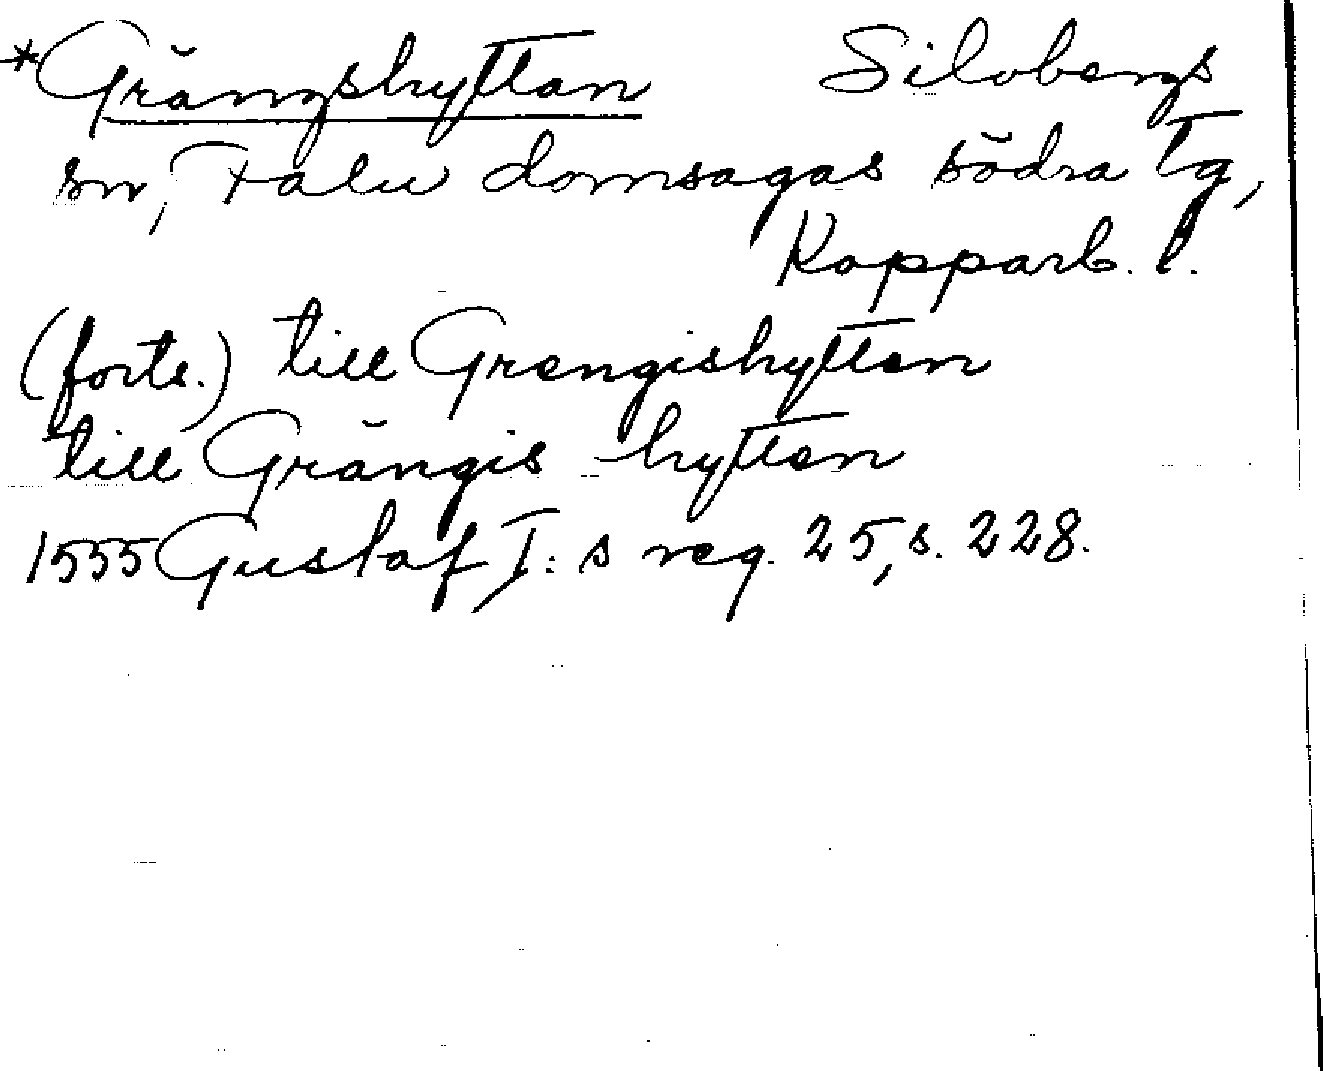 *Grängshyttan Silvbergs
sn, Falu domsagas södra tg,
Kopparb. l.
(forts.) till Grengishytten
till Grängis - hytten
1555 Gustaf I:s reg. 25, s. 228.